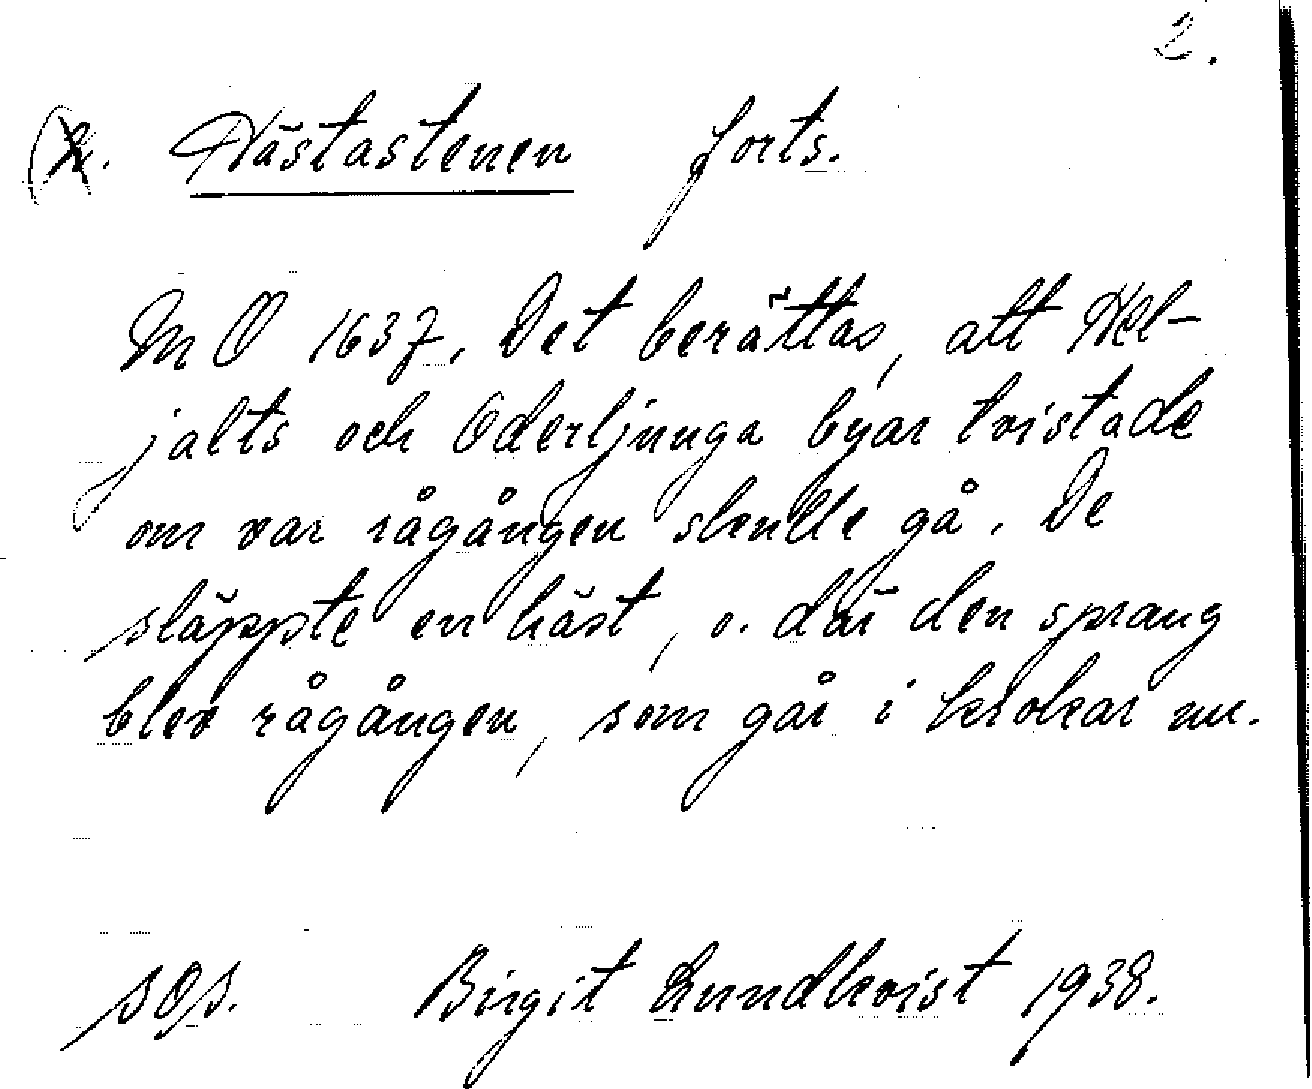 2.
Hästastenen forts.
M O 1637. Det berättas, att Hel-
jalts och Oderljunga byar tvistade
om var rågången skulle gå. De
släppte en häst, o. där den sprang
blev rågången, som går i krokar nu.
sOs. Birgit Lundkvist 1938.